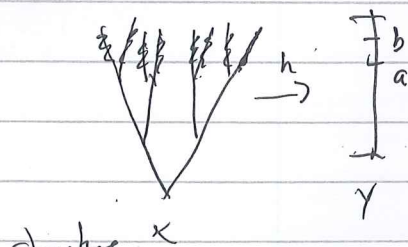 h
b
a
Y
X